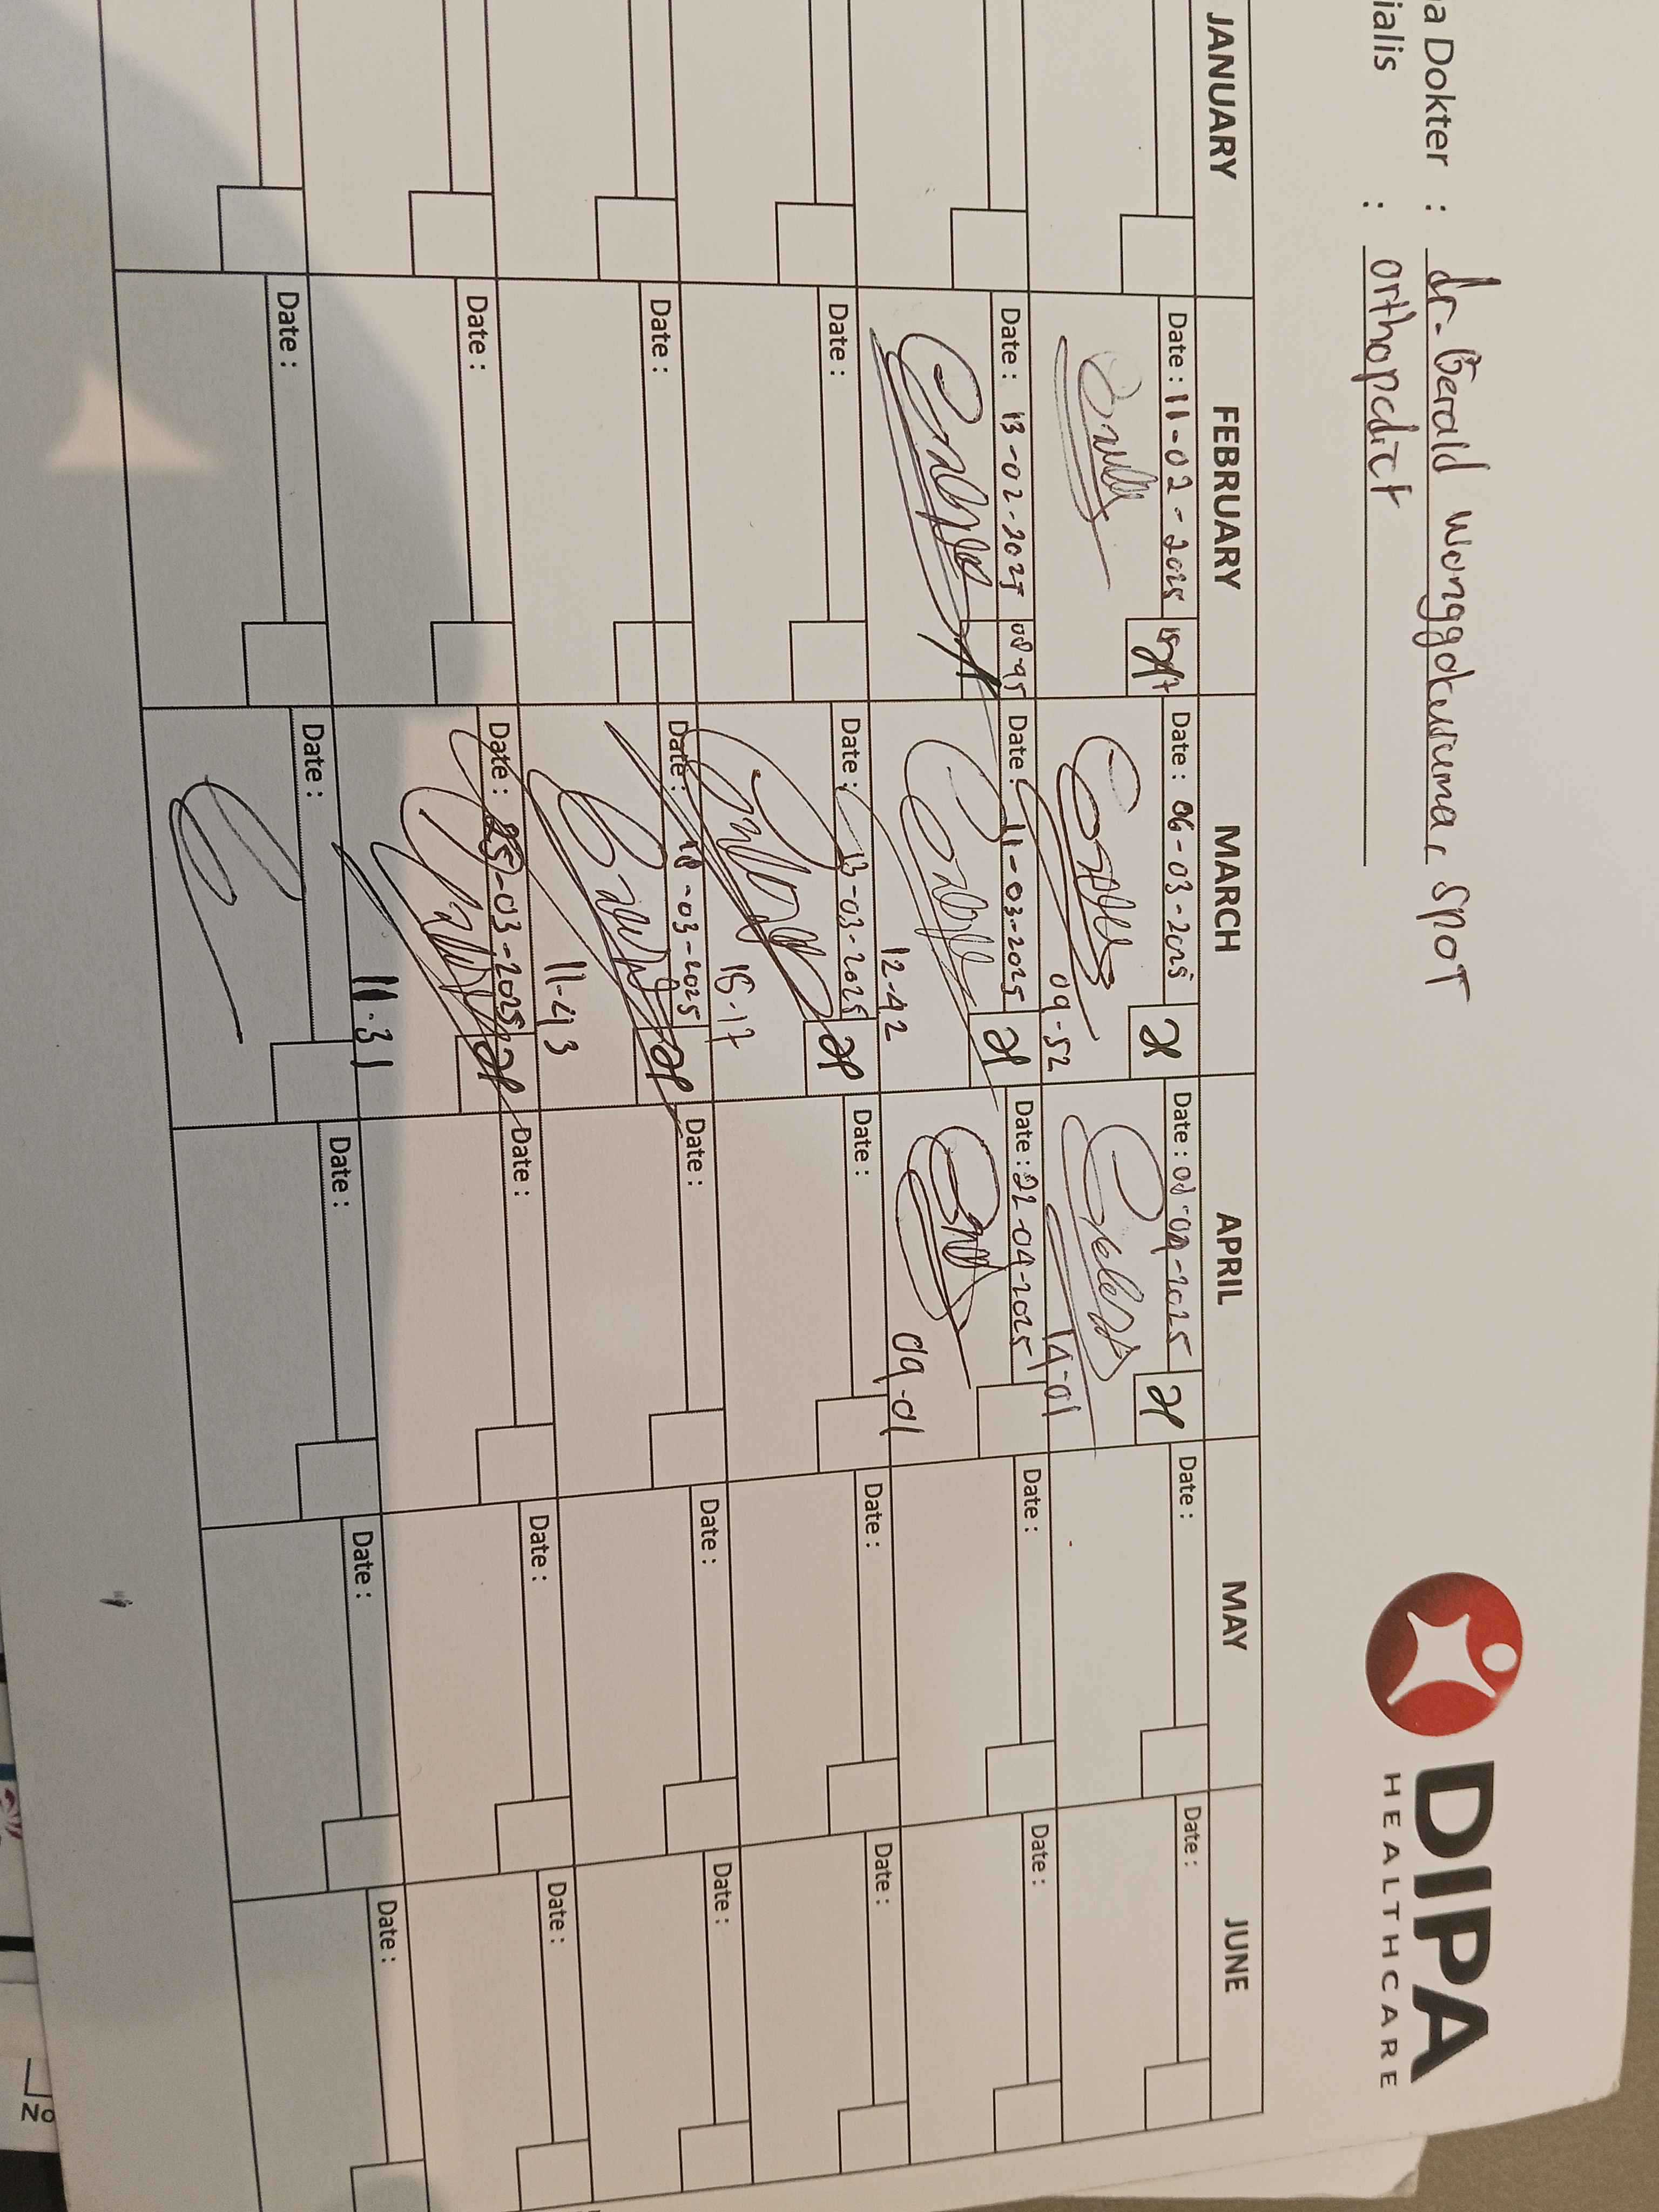 a Dokter : dr. Gerald Wonggokusuma, SpOT
ialis : orthopedict
DIPA
HEALTHCARE
JANUARY FEBRUARY MARCH APRIL MAY JUNE
Date : 11-02-2025 Date : 06-03-2025 Date : 08-04-2025 Date : Date :
09-52 14-01
Date : 13-02-2025 Date : 11-03-2025 Date : 22-04-2025 Date : Date :
12-42 09-01
Date : Date : 13-03-2025 Date : Date : Date :
15-17
Date : Date : 18-03-2025 Date : Date : Date :
11-43
Date : Date : 25-03-2025 Date : Date : Date :
11.31
Date : Date : Date : Date : Date :
No